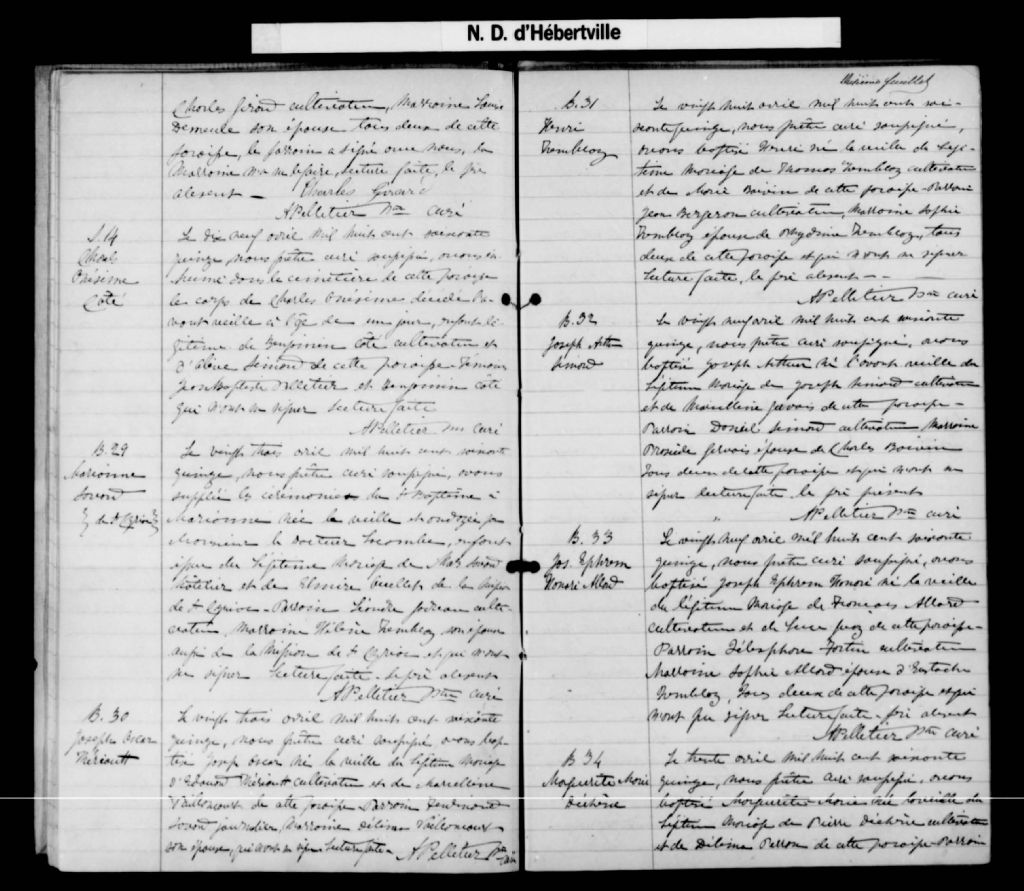 N. D. d'Hébertville
Charles Girard cultivateur, Marraine Louise
Demeule son épouse tous deux de cette
paroisse, le parrain a signé avec nous, la
Marraine n'a su le faire, lecture faite, le père
absent —
Charles Girard
A Pelletier Ptre curé
S. 14
Charles
Onésime
Côté
Le dix neuf avril mil huit cent soixante
quinze, nous prêtre curé soussigné, avons in-
humé dans le cimetière de cette paroisse
le corps de Charles Onésime décédé l'a-
vant veille à l'âge de un jour, enfant lé-
gitime de Benjamin Côté cultivateur et
d' Simard de cette paroisse. Témoins
Jean Baptiste Pelletier et Benjamin Côté
qui n'ont su signer lecture faite
A Pelletier Ptre curé
B. 29
Marianne
Savard
de St Cyriac
Le vingt trois avril mil huit cent soixante
quinze, nous prêtre curé soussigné, avons
supplée les cérémonies du St Baptême à
Marianne née la veille et ondoyée par
Monsieur le docteur Lacombe, enfant
issue du légitime mariage de Savard
hôtelier et de Ouellet de la Mission
de St Cyriac. Parrain Léandre culti-
vateur, Marraine Hélène Tremblay, son épouse
aussi de la Mission de St Cyriac et qui n'ont
su signer lecture faite. Le père absent
A Pelletier Ptre curé
B. 30
Joseph Oscar
Thériault
Le vingt trois avril mil huit cent soixante
quinze, nous prêtre curé soussigné, avons bap-
tisé Joseph Oscar né la veille du légitime mariage
d'Edouard Thériault cultivateur et de Marcelline
Vaillancourt de cette paroisse Parrain
Savard journalier, Marraine Délima Vaillancourt
son épouse, qui n'ont su signer lecture faite.
A Pelletier Ptre curé
feuillet
B. 31
Henri
Tremblay
Le vingt huit avril mil huit cent soi-
xante quinze, nous prêtre curé soussigné,
avons baptisé Henri né la veille du légi-
time mariage de Thomas Tremblay cultivateur
et de Marie Boivin de cette paroisse. Parrain
Jean Bergeron cultivateur, Marraine Sophie
Tremblay épouse de Tremblay, tous
deux de cette paroisse et qui n'ont su signer
lecture faite, le père absent — —
A Pelletier Ptre curé
B. 32
Joseph Arth
Simard
Le vingt neuf avril mil huit cent soixante
quinze, nous prêtre curé soussigné, avons
baptisé Joseph Arthur né l'avant veille du
légitime mariage de Joseph Simard cultivateur
et de Marcelline Gervais de cette paroisse —
Parrain Simard cultivateur Marraine
Gervais épouse de Charles Boivin
tous deux de cette paroisse et qui n'ont su
signer lecture faite le père présent
A Pelletier Ptre curé
B. 33
Jos. Ephrem
Honoré Allard
Le vingt neuf avril mil huit cent soixante
quinze, nous prêtre curé soussigné, avons
baptisé Joseph Ephrem Honoré né la veille
du légitime mariage de François Allard
cultivateur et de Luce de cette paroisse —
Parrain Télesphore Fortin cultivateur
Marraine Sophie Allard épouse d'Eustache
Tremblay, tous deux de cette paroisse et qui
n'ont pu signer lecture faite — père absent
A Pelletier Ptre curé
B 34
Marguerite Marie
Le trente avril mil huit cent soixante
quinze, nous prêtre curé soussigné, avons
baptisé Marguerite Marie née la veille du
légitime mariage de Pierre cultivateur
et de Délima Perron de cette paroisse — Parrain